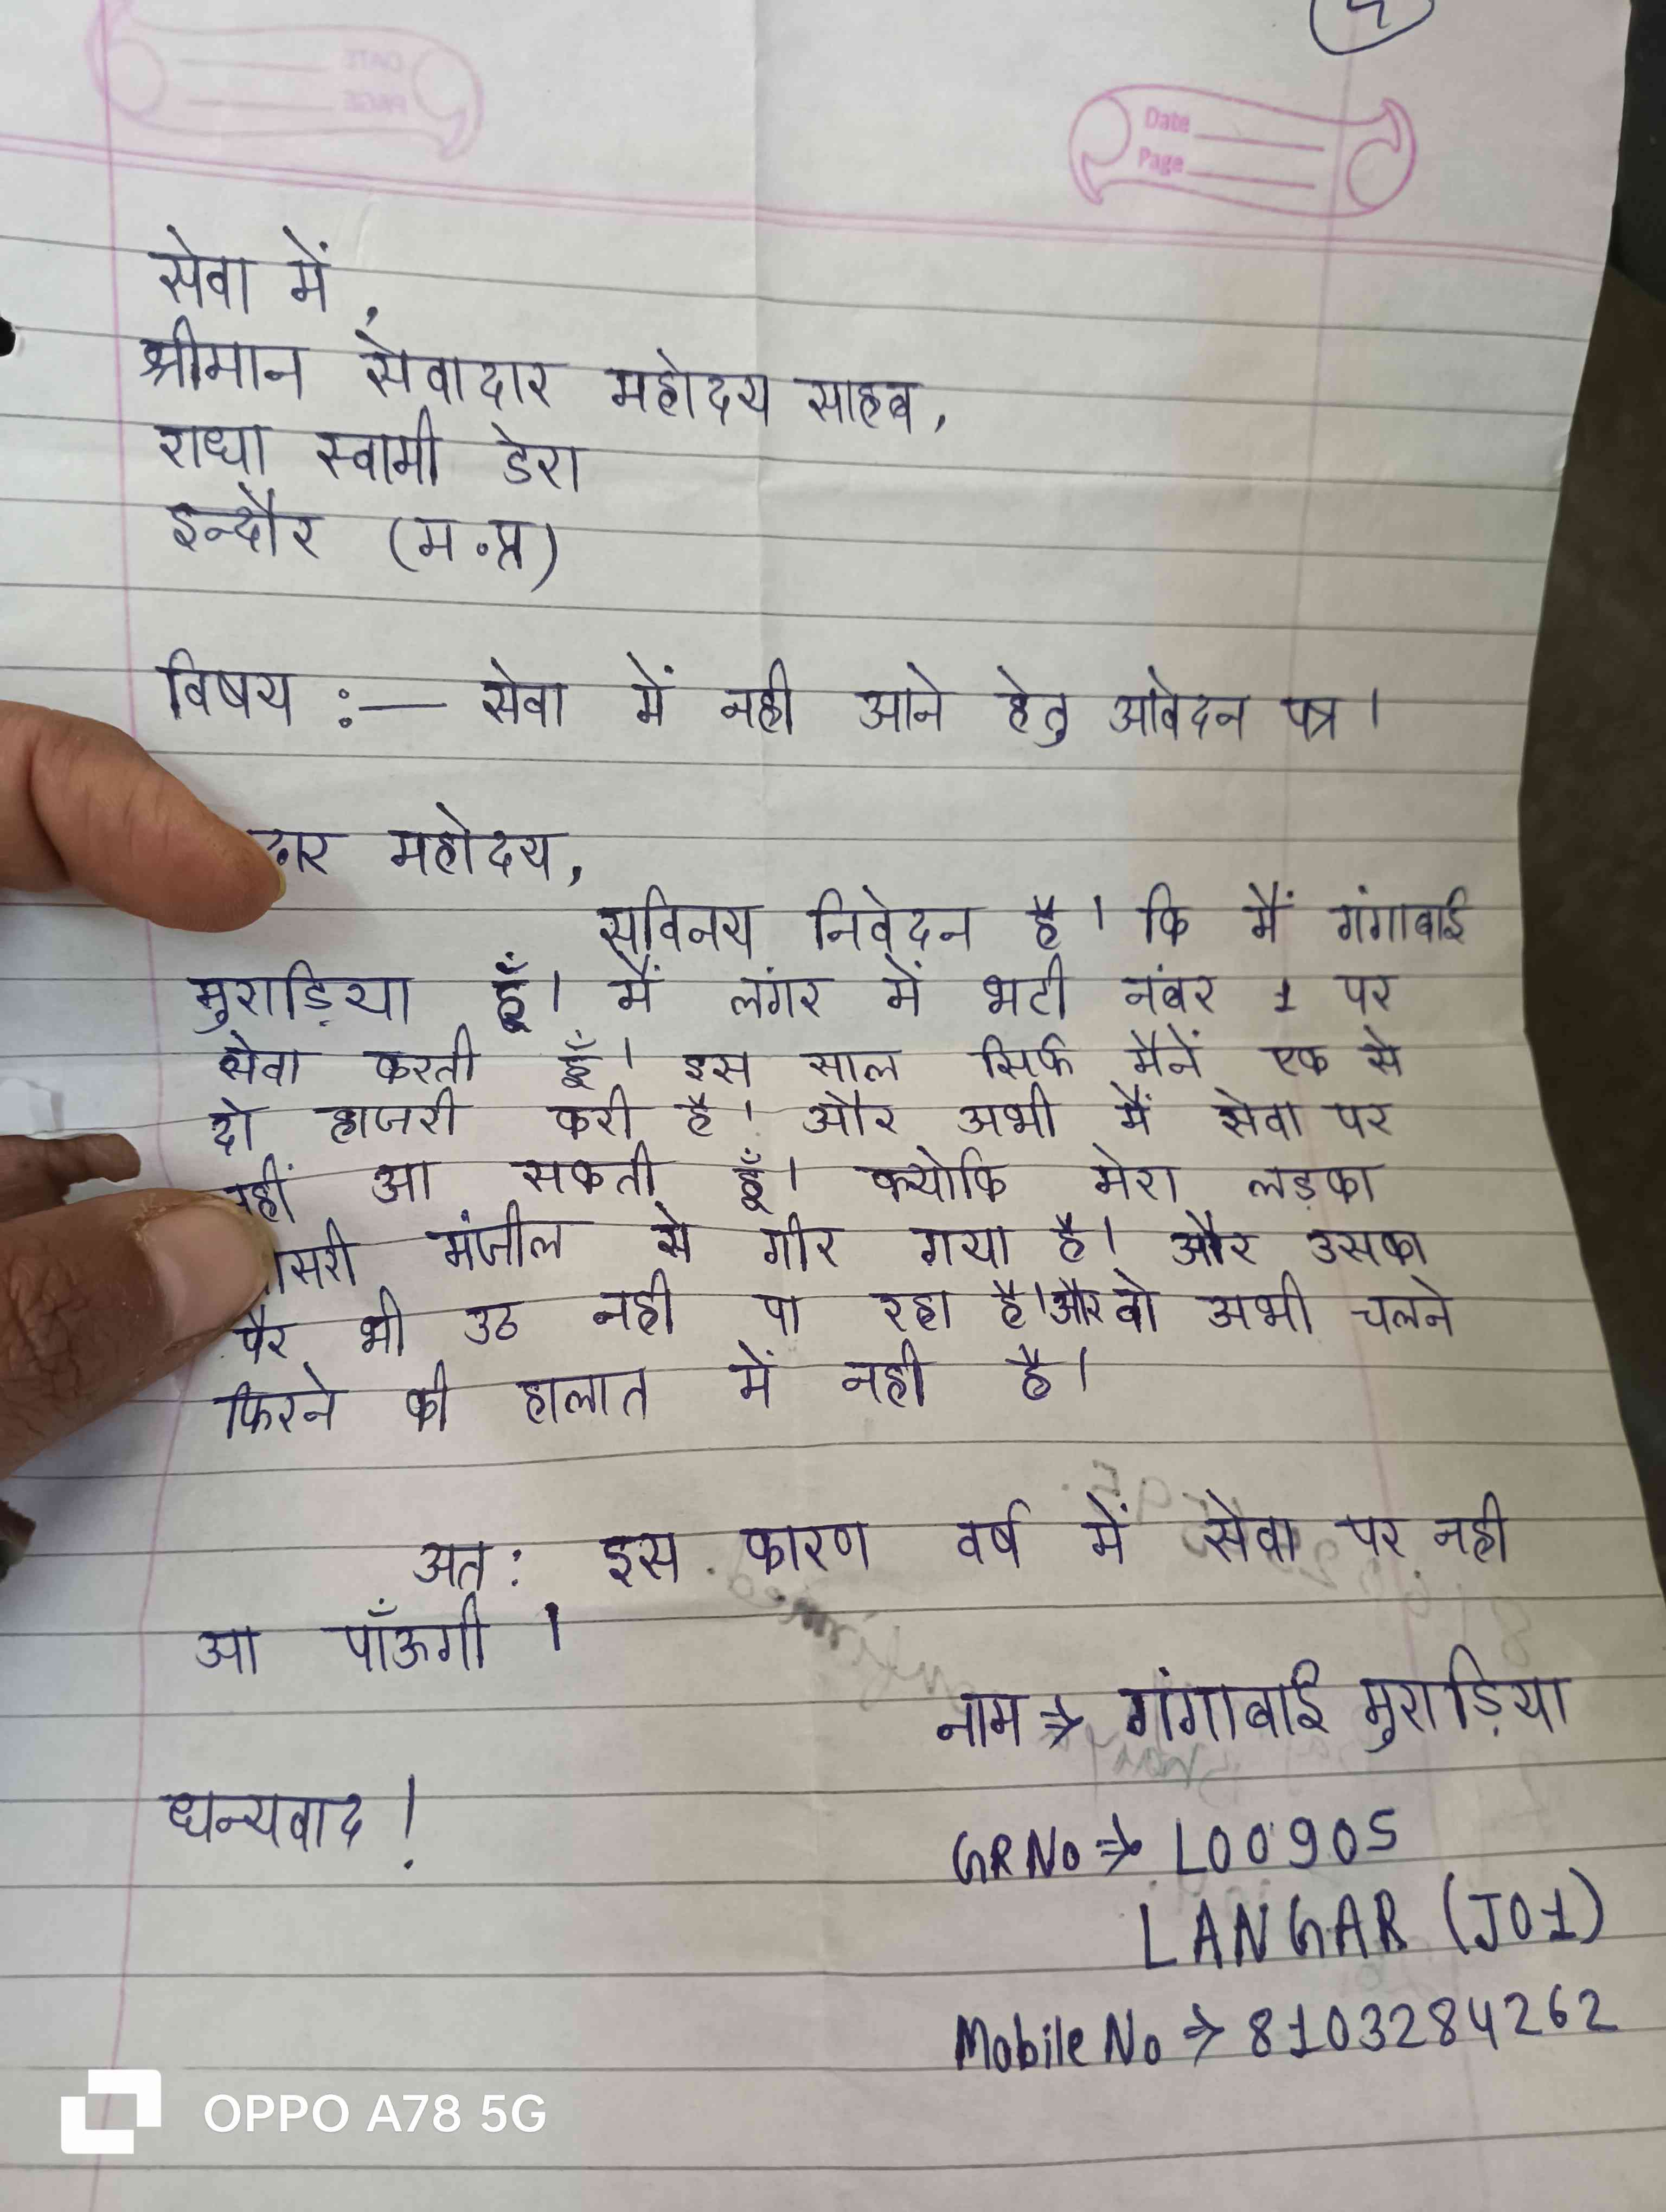 Date
Page
सेवा में,
श्रीमान सेवादार महोदय साहब,
राधा स्वामी डेरा
इन्दौर (म.प्र)
विषय :— सेवा में नही आने हेतु आवेदन पत्र।
दार महोदय,
सविनय निवेदन है। कि मैं गंगाबाई
मुराड़िया हूँ। मैं लंगर में भटी नंबर 1 पर
सेवा करती हूँ। इस साल सिर्फ मैनें एक से
दो हाजरी करी है। और अभी मैं सेवा पर
नहीं आ सकती हूँ। क्योकि मेरा लड़का
सरी मंजील से गीर गया है। और उसका
पैर भी उठ नही पा रहा है।और वो अभी चलने
फिरने की हालात में नही है।
अत: इस कारण वर्ष में सेवा पर नही
आ पाँऊगी ।
नाम ⇒ गंगाबाई मुराड़िया
धन्यवाद !
GR No ⇒ L00905
LANGAR (J01)
Mobile No ⇒ 8103284262
OPPO A78 5G